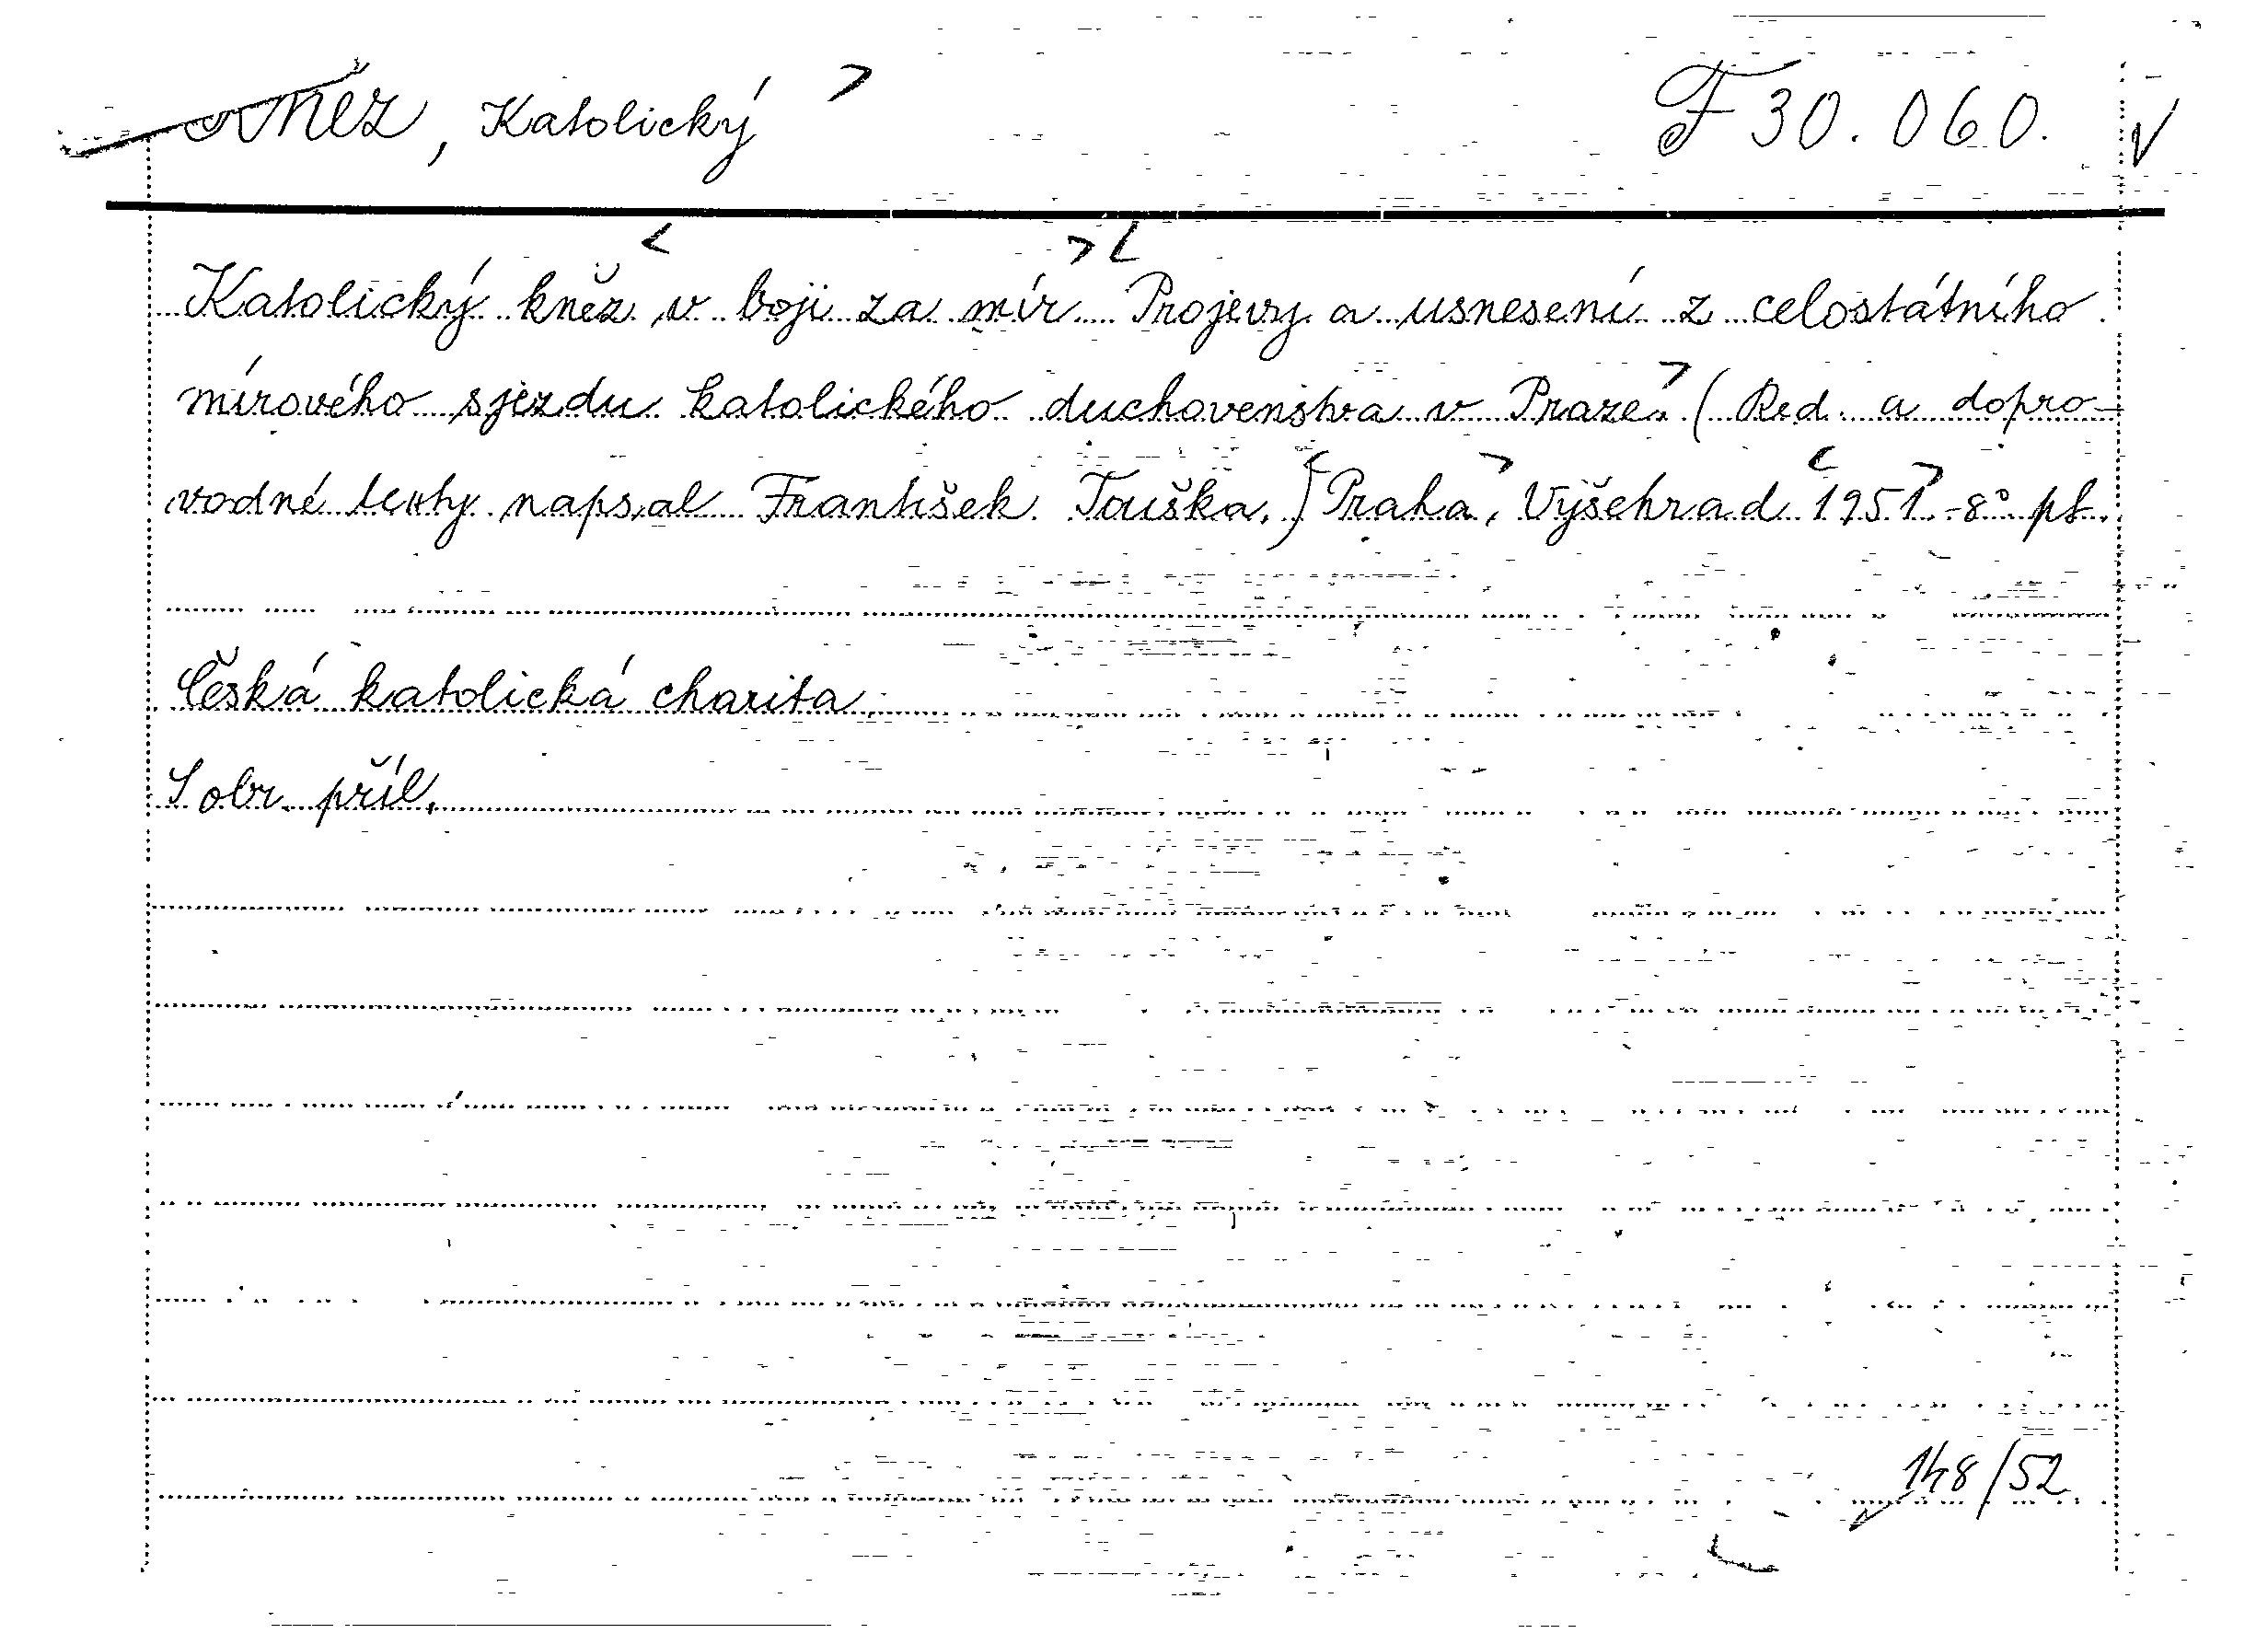 Kněz, Katolický F 30.060.
Katolický kněz v boji za mír. Projevy a usnesení z celostátního
mírového sjezdu katolického duchovenstva v Praze. (Red. a dopro-
vodné texty napsal František Touška.) Praha, Vyšehrad 1951. -8° pb.
Česká katolická charita.
S obr. příl.
148/52